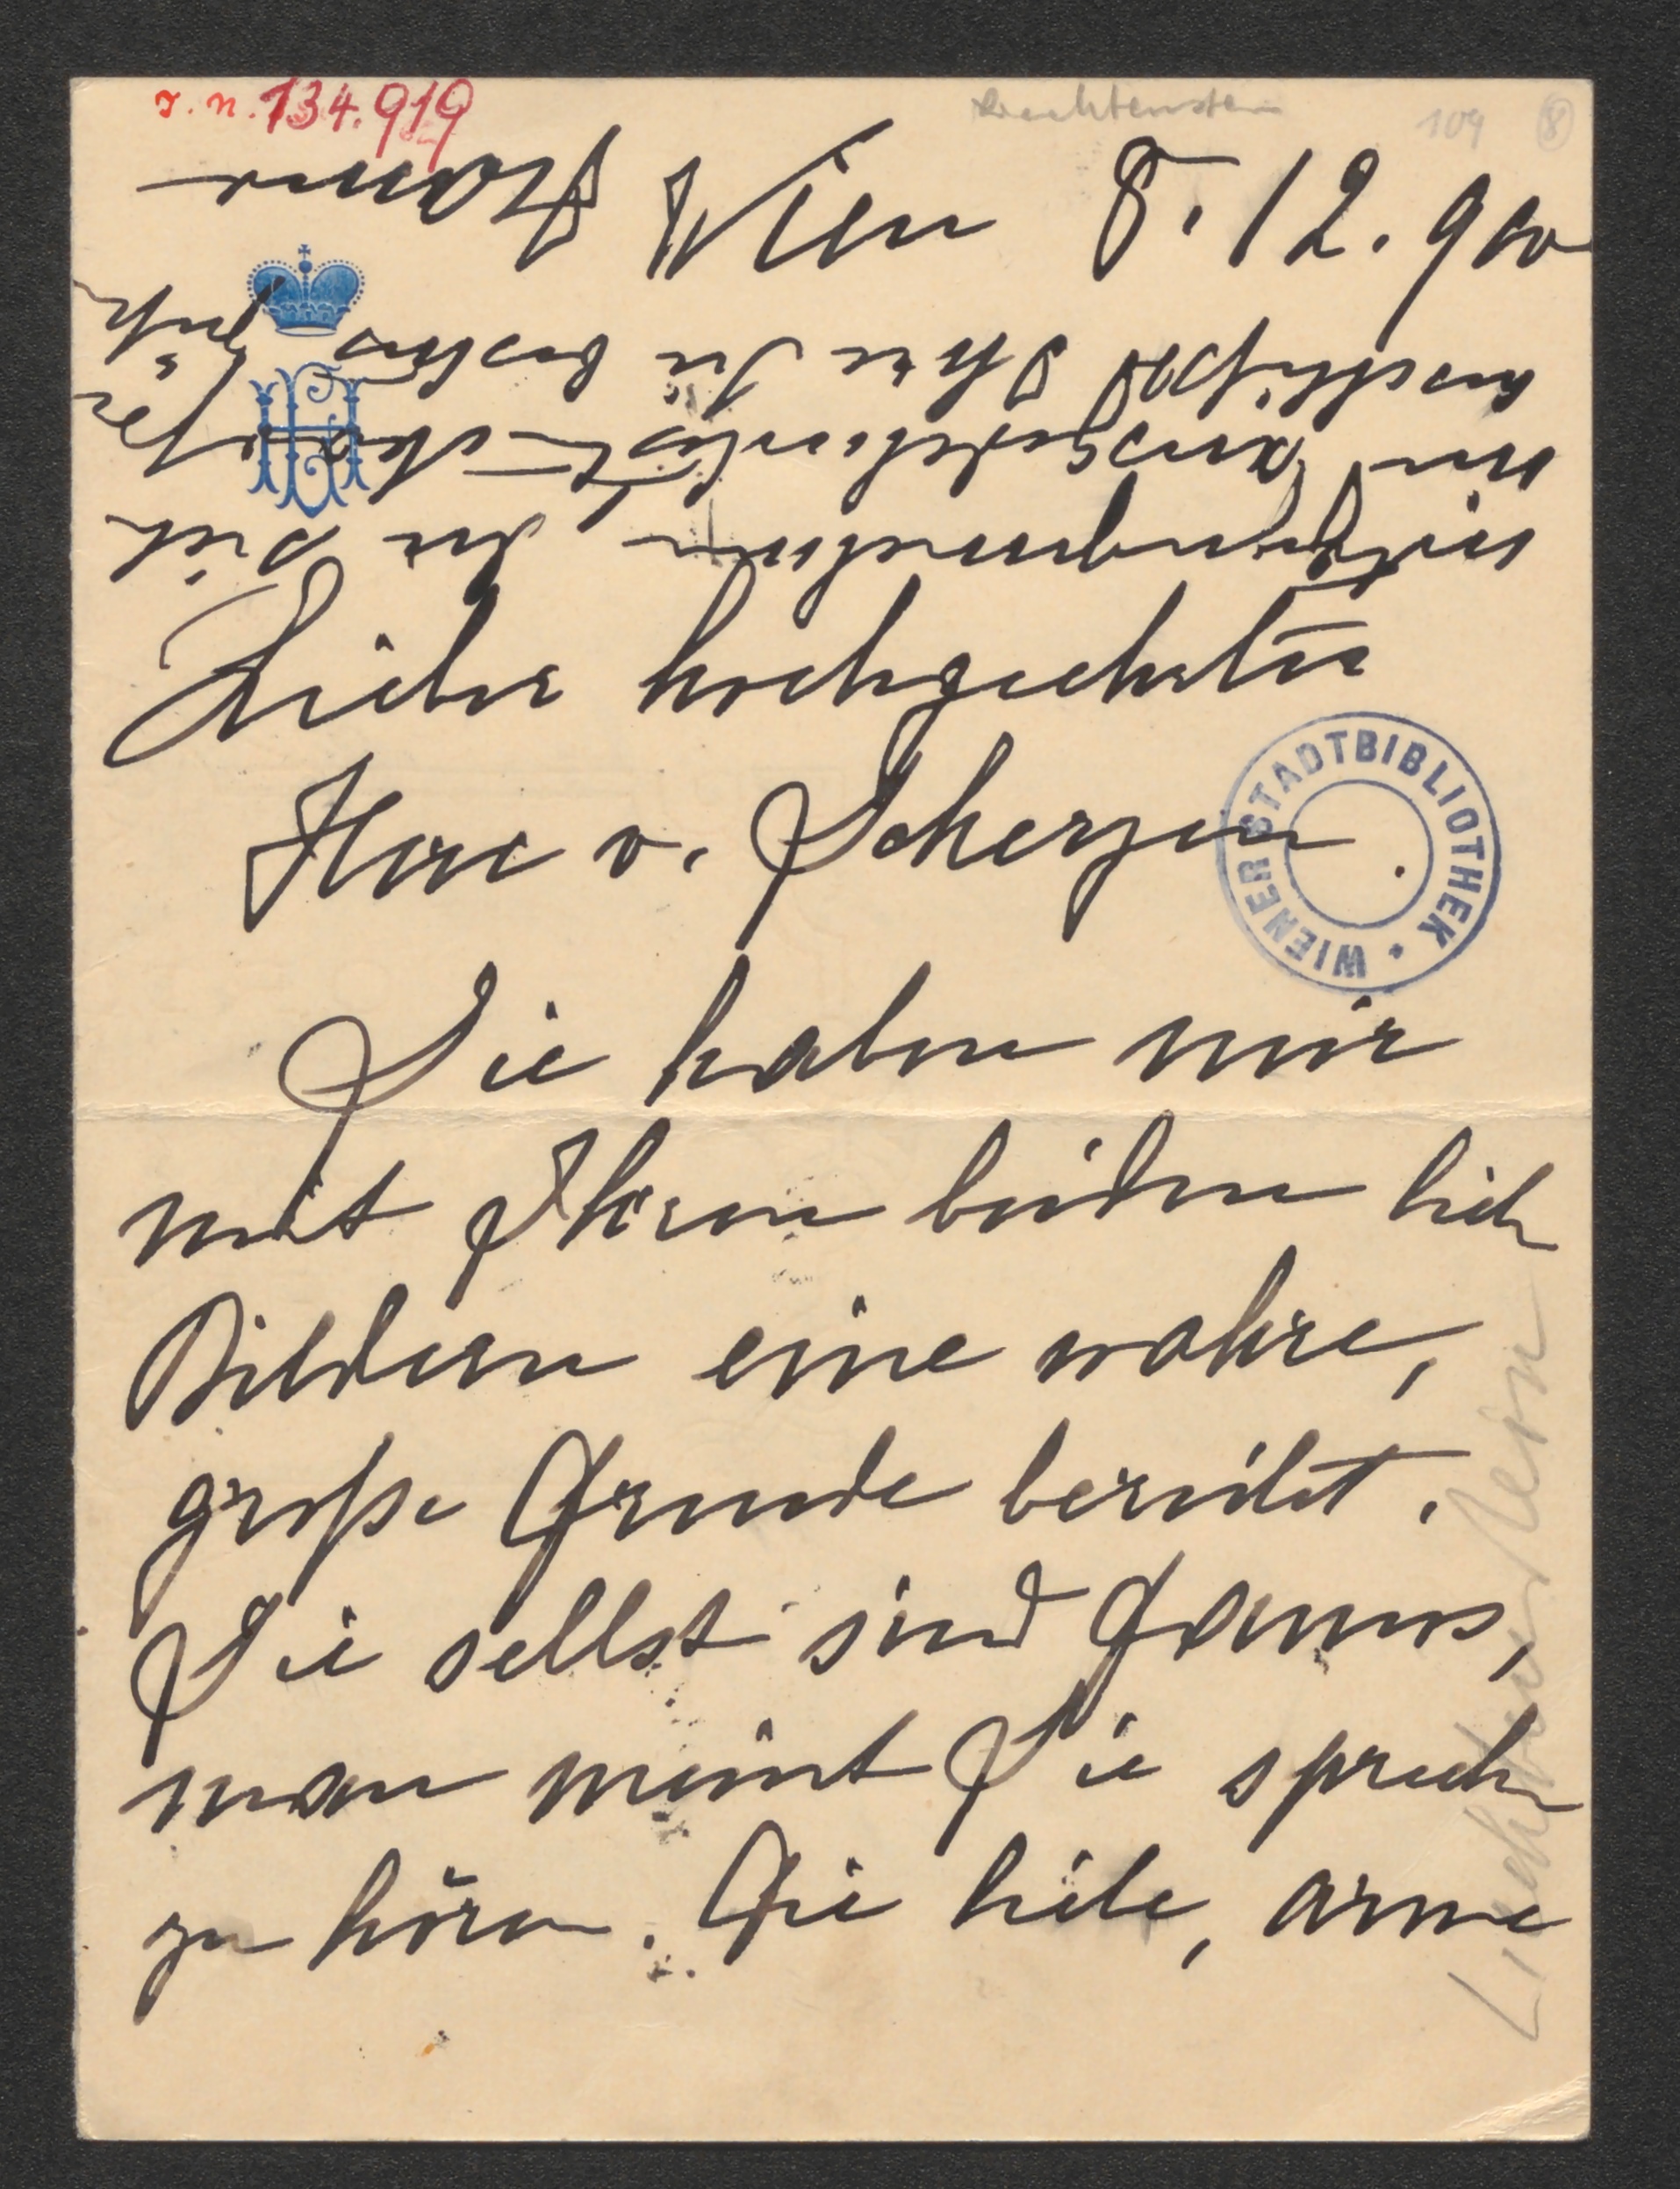 I. N. 134.919
Liechtenstein
109 8
Wien 8. 12. 900
Lieber hochgeehrter
Herr v. Scherzer.
Sie haben mir
mit Ihren beiden lieb
Bildern eine wahre,
große Freude bereitet.
Sie selbst sind famos,
man meint Sie sprech
zu hören. Die liebe, arme
WIENER STADTBIBLIOTHEK
Liechtenstein
die sich
anschließt Ihre Sie bestens
Hanna